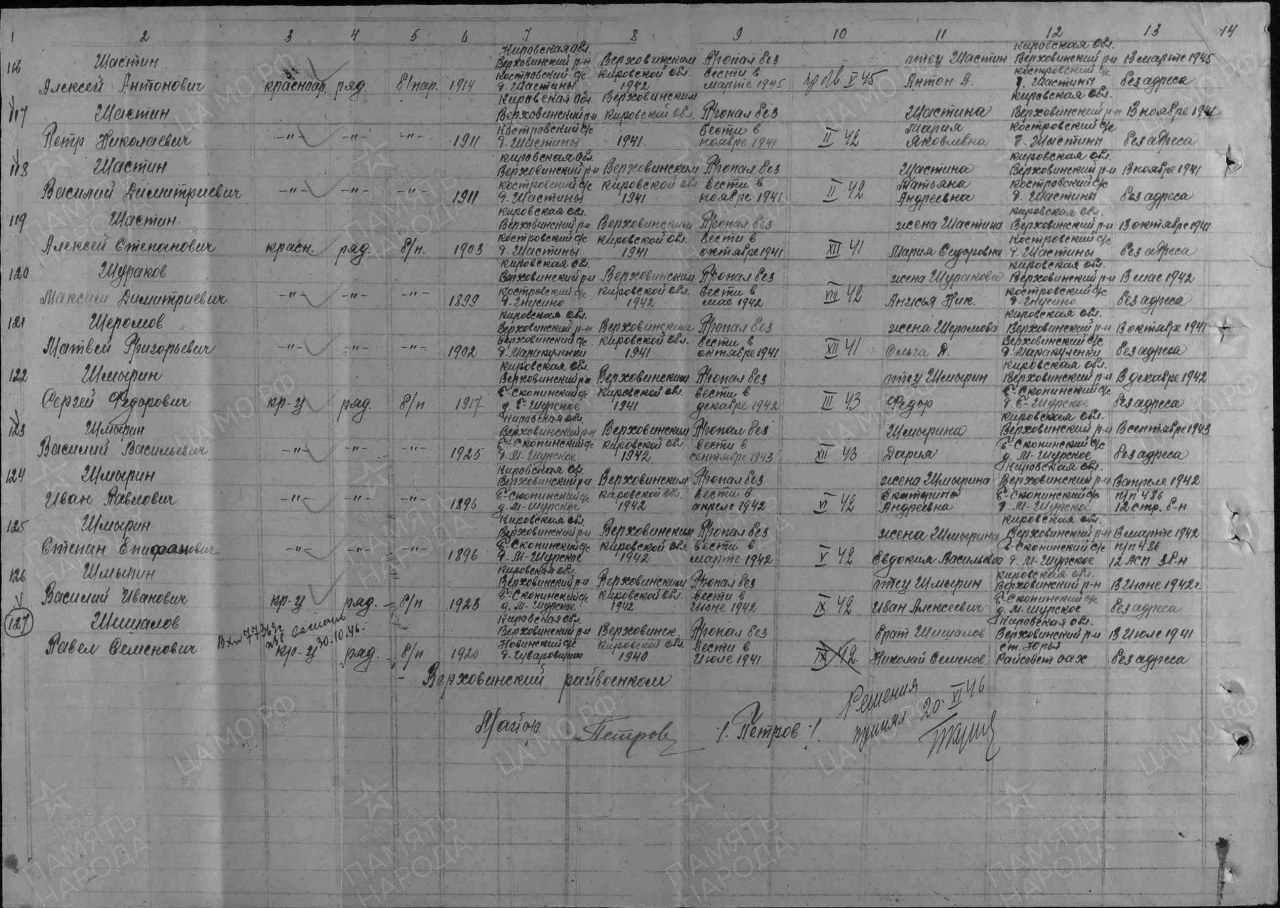 1 2 3 4 5 6 7 8 9 10 11 12 13 14
116 Шастин Алексей Антонович красноар. ряд. б/пар. 1914 Кировская обл. Верховинский р-н Костровский с/с д. Шастины Верховинским Кировской обл. 1942 Пропал без вести в марте 1945 V 45 отец Шастин Антон А Кировская обл. Верховинский р-н Костровский с/с д. Шастины В марте 1945 без адреса
117 Шастин Петр Николаевич -"- -"- -"- 1911 Кировская обл. Верховинский р-н Костровский с/с д. Шастины Верховинским Кировской обл 1941 Пропал без вести в ноябре 1941 II 42 Шастина Мария Яковлевна Кировская обл. Верховинский р-н Костровский с/с д. Шастины В ноябре 1941 без адреса
118 Шастин Василий Димитриевич -"- -"- -"- 1911 Кировская обл. Верховинский р-н Костровский с/с д. Шастины Верховинским Кировской обл 1941 Пропал без вести в ноябре 1941 II 42 Шастина Татьяна Андреевна Кировская обл. Верховинский р-н Костровский с/с д. Шастины В ноябре 1941 без адреса
119 Шастин Алексей Степанович красн. ряд. б/п. 1903 Кировская обл. Верховинский р-н Костровский с/с д. Шастины Верховинским Кировской обл. 1941 Пропал без вести в октябре 1941 XII 41 жена Шастина Мария Сидоровна Кировская обл. Верховинский р-н Костровский с/с д. Шастины В октябре 1941 без адреса
120 Шураков Максим Димитриевич -"- -"- -"- 1899 Кировская обл. Верховинский р-н Костровский с/с д. Гнусино Верховинским Кировской обл. 1942 Пропал без вести в мае 1942 42 жена Шуракова Анисья Ник. Кировская обл. Верховинский р-н Костровский с/с д. Гнусино В мае 1942 без адреса
121 Шеромов Матвей Григорьевич -"- -"- -"- 1902 Кировская обл. Верховинский р-н Верховинский с/с Верховинским Кировской обл. 1941 Пропал без вести в октябре 1941 XII 41 жена Шеромова Ольга Кировская обл. Верховинский р-н Верховинский с/с В октябре 1941 без адреса
122 Шмырин Сергей Федорович кр-ц ряд. б/п 1917 Кировская обл. Верховинский р-н Б-Скопинский с/с д. Б-Шурское Верховинским Кировской обл. 1941 Пропал без вести в декабре 1942 III 43 отец Шмырин Федор Кировская обл. Верховинский р-н Б-Скопинский с/с д. Б-Шурское В декабре 1942 без адреса
123 Шмырин Василий Васильевич -"- -"- -"- 1925 Кировская обл. Верховинский р-н Б-Скопинский с/с д. М-Шурское Верховинским Кировской обл 1942 Пропал без вести в сентябре 1943 XII 43 Шмырина Дария Кировская обл. Верховинский р-н Б-Скопинский с/с д. М-Шурское В сентябре 1943 без адреса
124 Шмырин Иван Павлович -"- -"- -"- 1896 Кировская обл. Верховинский р-н Б-Скопинский с/с д. М-Шурское Верховинским Кировской обл 1942 Пропал без вести в апреле 1942 VI 42 жена Шмырина Екатерина Андреевна Кировская обл. Верховинский р-н Б-Скопинский с/с д. М-Шурское В апреле 1942 п/п 486 12 стр. б-н
125 Шмырин Степан Епифанович -"- -"- -"- 1896 Кировская обл Верховинский р-н Б-Скопинский с/с д. М-Шурское Верховинским Кировской обл 1942 Пропал без вести в марте 1942 V 42 жена Шмырина Евдокия Кировская обл. Верховинский р-н Б-Скопинский с/с д. М-Шурское В марте 1942 п/п 486
126 Шмырин Василий Иванович кр-ц ряд. б/п 1923 Кировская обл. Верховинский р-н Б-Скопинский с/с д. М-Шурское Верховинским Кировской обл. 1942 Пропал без вести в июне 1942 IX 42 отец Шмырин Иван Алексеевич Кировская обл. Верховинский р-н Б-Скопинский с/с д. М-Шурское В июне 1942г. без адреса
127 Шишалов Павел Семенович 30.10.46. кр-ц ряд. б/п 1920 Кировская обл Верховинский р-н Новинский с/с Верховинск. Кировской обл 1940 Пропал без вести в июле 1941 IX 42 брат Шишалов Николай Семенов. Кировская обл. Верховинский р-н ст. Юрья В июле 1941 без адреса
Верховинский райвоенком
Майор Петров /. Петров ./
Решения принял 20.XI 46
ПАМЯТЬ НАРОДА
ЦАМО.РФ